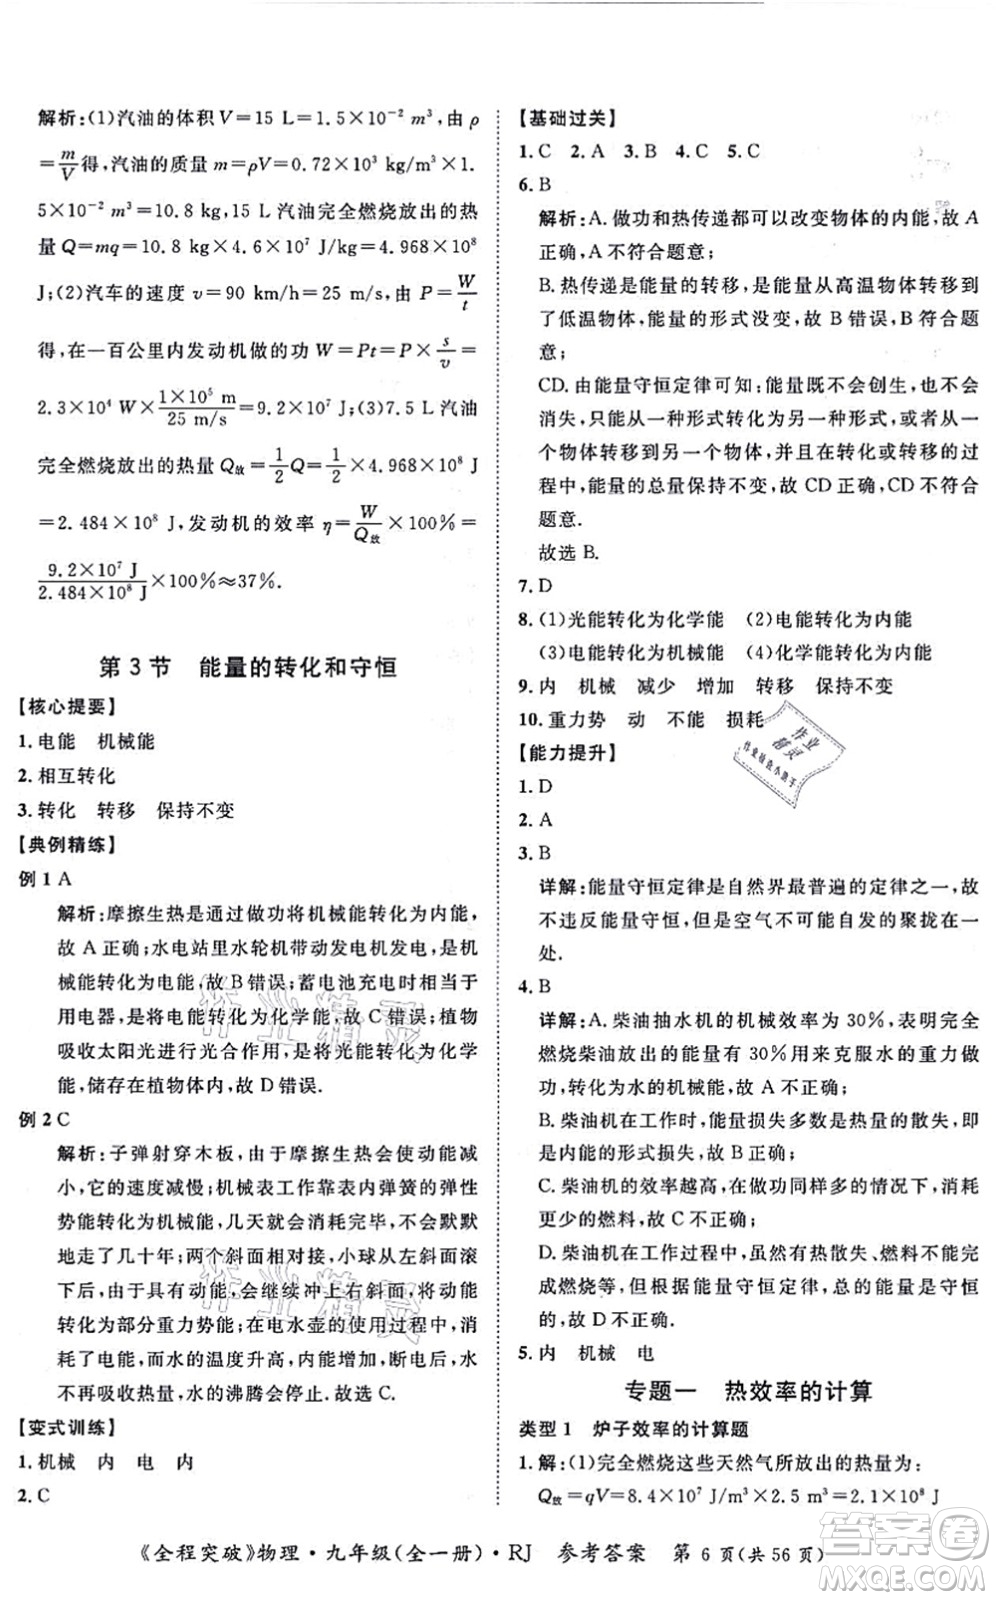 解析:(1)汽油的体积V=15 L=1.5×10⁻² m³,由ρ
=m/V得,汽油的质量m=ρV=0.72×10³ kg/m³×1.
5×10⁻² m³=10.8 kg,15 L汽油完全燃烧放出的热
量Q=mq=10.8 kg×4.6×10⁷ J/kg=4.968×10⁸
J;(2)汽车的速度v=90 km/h=25 m/s,由P=W/t
得,在一百公里内发动机做的功W=Pt=P×s/v=
2.3×10⁴ W×(1×10⁵ m)/(25 m/s)=9.2×10⁷ J;(3)7.5 L汽油
完全燃烧放出的热量Q放=1/2Q=1/2×4.968×10⁸ J
=2.484×10⁸ J,发动机的效率η=W/Q放×100%=
(9.2×10⁷ J)/(2.484×10⁸ J)×100%≈37%.
第3节 能量的转化和守恒
【核心提要】
1.电能 机械能
2.相互转化
3.转化 转移 保持不变
【典例精练】
例1 A
解析:摩擦生热是通过做功将机械能转化为内能,
故A正确;水电站里水轮机带动发电机发电,是机
械能转化为电能,故B错误;蓄电池充电时电池属
于用电器,是将电能转化为化学能,故C错误;植物
吸收太阳光进行光合作用,是将光能转化为化学
能,储存在植物体内,故D错误.
例2 C
解析:子弹射穿木板,由于摩擦生热会使动能减
小,它的速度减慢;机械表工作靠内弹簧的弹性
势能转化为机械能,几天就会消耗完毕,不会默默
地走了几十年;两个斜面相对接,小球从左斜面滚
下,由于惯性,会继续冲上右斜面,小球的动能会
转化为部分重力势能;在电水壶的烧水过程中,消
耗了电能,而水的温度升高,内能增加,断电后,水
不再吸收热量,水的沸腾会停止,故选C.
【变式训练】
1.机械 内 电 内
2.C
【基础过关】
1.C 2.A 3.B 4.C 5.C
6.B
解析:A.做功和热传递都可以改变物体的内能,故A
正确,A不符合题意;
B.热传递是能量的转移,是能量从高温物体转移到
了低温物体,能量的形式没变,故B错误,B符合题
意;
CD.由能量守恒定律可知:能量既不会创生,也不会
消失,只能从一种形式转化为另一种形式,或者从一
个物体转移到另一个物体,而在转化或转移的过
程中,能量的总量保持不变,故CD正确,CD不符合
题意.
故选B.
7.D
8.(1)光能转化为化学能 (2)电能转化为内能
(3)电能转化为机械能 (4)化学能转化为内能
9.内 机械 减少 增加 转移 保持不变
10.重力势 动 不能 损耗
【能力提升】
1.D
2.A
3.B
详解:能量守恒定律是自然界最普遍的定律之一,故
不违反能量守恒,但是空气不可能自发的聚拢在一
处.
4.B
详解:A.柴油抽水机的机械效率为30%,表明完全
燃烧柴油放出的能量有30%用来克服水的重力做
功,转化为水的机械能,故A不正确;
B.柴油机在工作时,能量损失多数是热量的散失,是
内能的形式损失,故B正确;
C.柴油机的效率越高,在做功相同的情况下,消耗
更少的燃料,故C不正确;
D.柴油机在工作过程中,虽然有热散失、燃料不完
成燃烧等,但根据能量守恒定律,总的能量是守恒
的.故D不正确.
5.内 机械 电
专题一 热效率的计算
类型1 炉子效率的计算题
1.解:(1)完全燃烧这些天然气所放出的热量为:
Q放=qV=8.4×10⁷ J/m³×2.5 m³=2.1×10⁸ J
《全程突破》物理·九年级(全一册)·RJ 参考答案 第6页(共56页)
作业精灵
作业精灵
作业
精灵
作业检查小助手
MXQE.COM